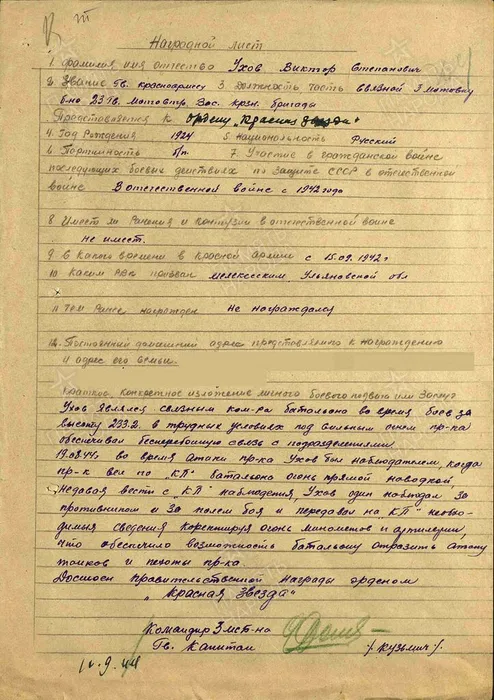 Наградной лист
1. Фамилия имя отчество Ухов Виктор Степанович
2. Звание Гв. красноармеец 3. должность часть связной 3 мотострелк.
б-на 23 Гв. Мотостр. Вас. крзн. бригады
Представляется к ордену „Красная Звезда"
4. Год Рождения 1924 5 национальность Русский
6. Партийность б/п. 7. Участие в гражданской войне
последующих боевых действиях по защите СССР в отечественной
войне В отечественной войне с 1942 года
8. Имеет ли Ранения и контузии в отечественной войне
не имеет.
9. С Какого времени в красной армии с 15.09.1942 г
10. Каким РВК призван Мелекесским, Ульяновской обл
11. Чем Ранее награжден Не награждался
12. Постоянный домашний адрес представляемого к награждению
и адрес его семьи.
Краткое, конкретное изложение личного боевого подвига или Заслуг
Ухов являлся связным ком-ра батальона во время боев за
высоту 233.2, в трудных условиях под сильным огнем пр-ка
обеспечивал бесперебойную связь с подразделениями.
19.08.44г. во время атаки пр-ка Ухов был наблюдателем, когда
пр-к вел по „КП" батальона огонь прямой наводкой
Недавая вести с „КП" наблюдения, Ухов один наблюдал за
противником и за полем боя и передавал на „КП" необхо-
димые сведения коректируя огонь минометов и артилерии,
что обеспечило возможность батальону отразить атаку
танков и пехоты пр-ка.
Достоен правительственной награды орденом
„Красная Звезда"
Командир 3 мсб-на
Гв. Капитан /Кузьмич/.
12.9.44